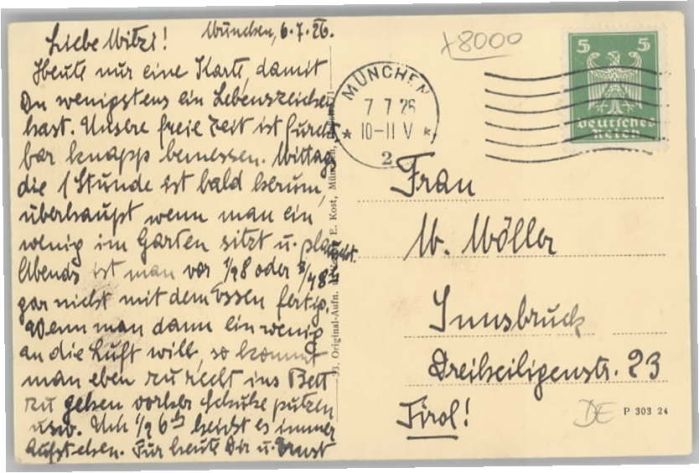 München, 6.7.26.
Liebe Mitzi!
Heute nur eine Karte, damit
Du wenigstens ein Lebenszeichen
hast. Unsere freie Zeit ist furcht-
bar knapp bemessen. Mittag
die 1 Stunde ist bald herum,
überhaupt wenn man ein
wenig im Garten sitzt u.
Abends ist man vor 1/2 8 oder 3/4 8
gar nicht mit dem Essen fertig.
Wenn man dann ein wenig
an die Luft will, so kommt
man eben zu recht ins Bett
zu gehen vorher Schuhe putzen
usw. Um 1/2 6 h heißt es immer
aufstehen. Für heute Dir u. Ernst
Original-Aufn. E. Kost, München
x8000
MÜNCHEN
7 7 26
* 10-11 V *
2
5 5
Deutsches
Reich
Frau
M. Möller
Innsbruck
Dreiheiligenstr. 23
Tirol!
DE
P 303 24